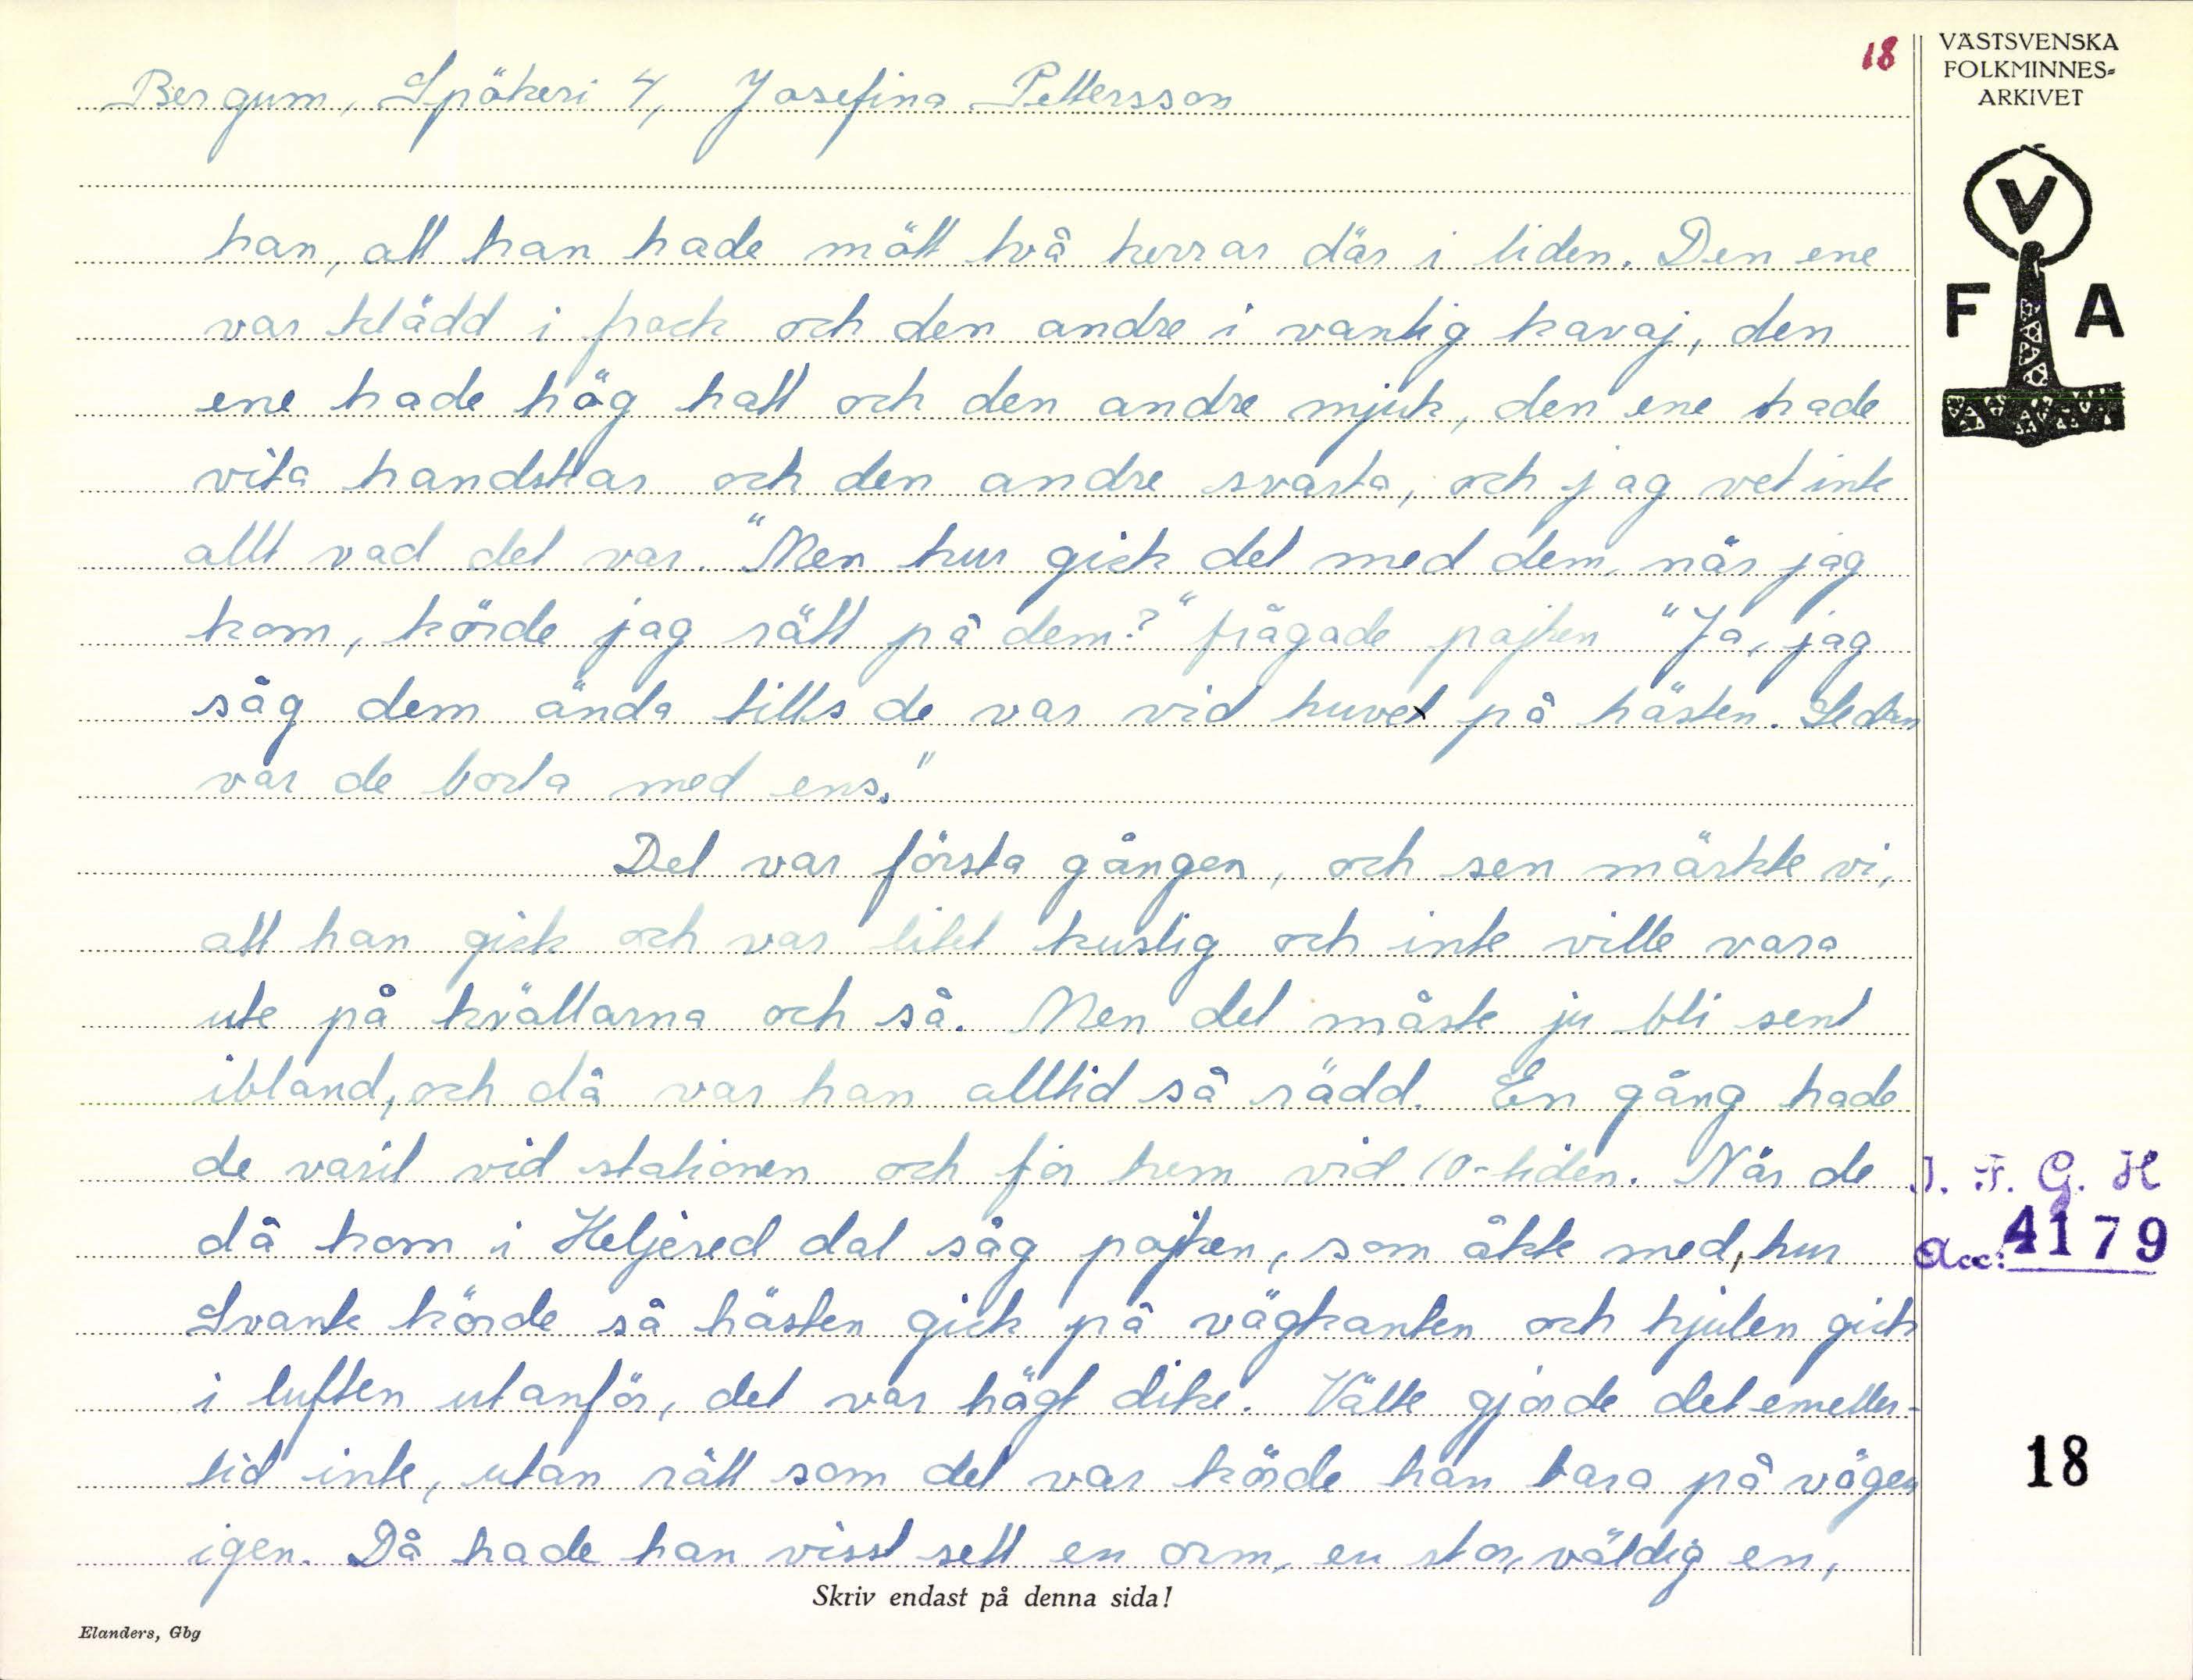 18
VÄSTSVENSKA
FOLKMINNES-
ARKIVET
Bergum, Spökeri 4, Josefina Pettersson
V
F A
han, att han hade mött två herrar där i liden. Den ene
var klädd i frack och den andre i vanlig kavaj, den
ene hade hög hatt och den andre mjuk, den ene hade
vita handskar och den andre svarta, och jag vet inte
allt vad det var. "Men hur gick det med dem, när jag
kom, körde jag rätt på dem?" frågade pojken "Ja, jag
såg dem ända tills de var vid huvet på hästen. Sedan
var de borta med ens."
Det var första gången, och sen märkte vi,
att han gick och var litet kuslig och inte ville vara
ute på kvällarna och så. Men det måste ju bli sent
ibland, och då var han alltid så rädd. En gång hade
de varit vid stationen och for hem vid 10-tiden. När de
då kom i Heljered dal såg pojken, som åkte med, hur
Svante körde så hästen gick på vägkanten och hjulen gick
i luften utanför, det var högt dike. Välte gjorde det emeller-
tid inte, utan rätt som det var körde han bara på vägen
igen. Då hade han visst sett en orm, en stor, väldig en,
I. F. G. H
Acc: 4179
18
Skriv endast på denna sida!
Elanders, Gbg